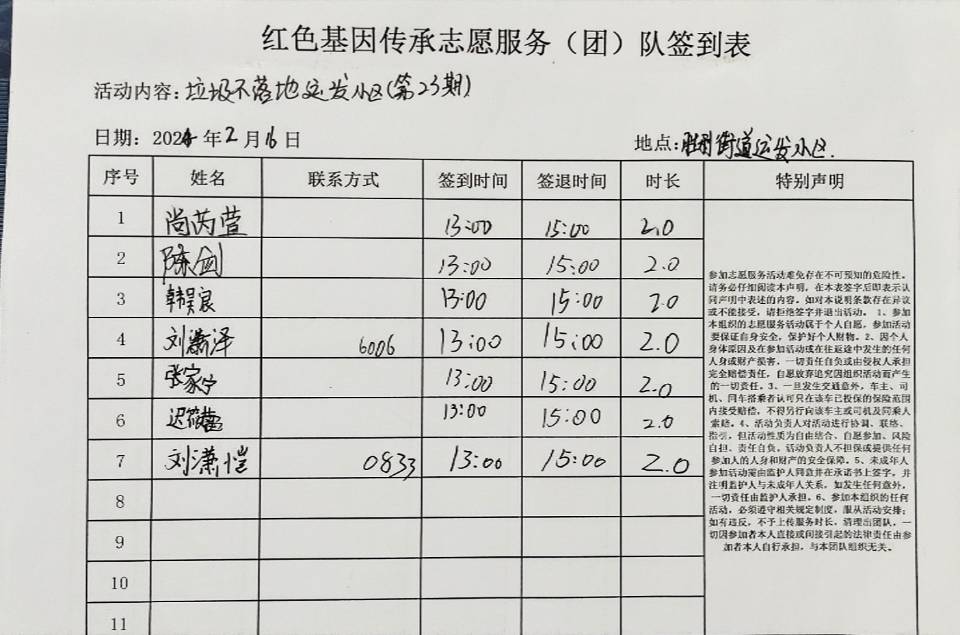 红色基因传承志愿服务（团）队签到表
活动内容：垃圾不落地运发小区(第23期)
日期：2024年2月16日 地点：街道运发小区.
序号 姓名 联系方式 签到时间 签退时间 时长 特别声明
1 尚芮萱 13:00 15:00 2.0
2 陈剑 13:00 15:00 2.0
3 韩昊宸 13:00 15:00 2.0
4 刘潇泽 6006 13:00 15:00 2.0
5 张家宁 13:00 15:00 2.0
6 迟筱 13:00 15:00 2.0
7 刘潇恺 0833 13:00 15:00 2.0
8
9
10
11
参加志愿服务活动难免存在不可预知的危险性。
请务必仔细阅读本声明，在本表签字后即表示认
同声明中表述的内容。如对本说明条款存在异议
或不能接受，请拒绝签字并退出活动。 1、参加
本组织的志愿服务活动属于个人自愿，参加活动
要保证自身安全，保护好个人财物。2、因个人
身体原因及在参加活动或在往返途中发生的任何
人身或财产损害，一切责任自负或由侵权人承担
完全赔偿责任，自愿放弃追究因组织活动而产生
的一切责任。3、一旦发生交通意外，车主、司
机、同车搭乘者认可只在该车已投保的保险范围
内接受赔偿，不得另行向该车主或司机及同乘人
索赔。4、活动负责人对活动进行协调、联络、
指引，但活动性质为自由结合、自愿参加、风险
自担、责任自负。活动负责人不担保或提供任何
参加人的人身和财产的安全保障。5、未成年人
参加活动需由监护人同意并在承诺书上签字，并
注明监护人与未成年人关系，如发生任何意外，
一切责任由监护人承担。6、参加本组织的任何
活动，必须遵守相关规定制度，服从活动安排；
如有违反，不予上传服务时长，清理出团队，一
切因参加者本人直接或间接引起的法律责任由参
加者本人自行承担，与本团队组织无关。